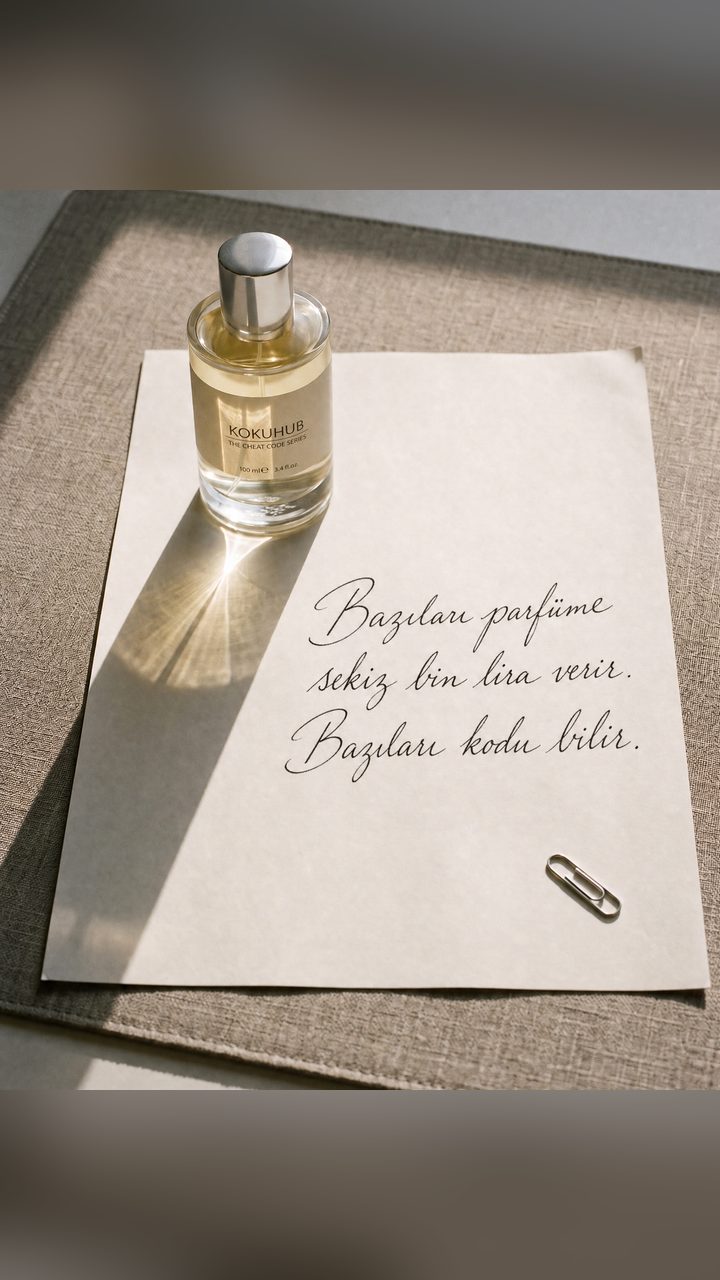 KOKUHUB
THE CHEAT CODE SERIES
100 ml ℮ 3.4 fl.oz.
Bazıları parfüme
sekiz bin lira verir.
Bazıları kodu bilir.